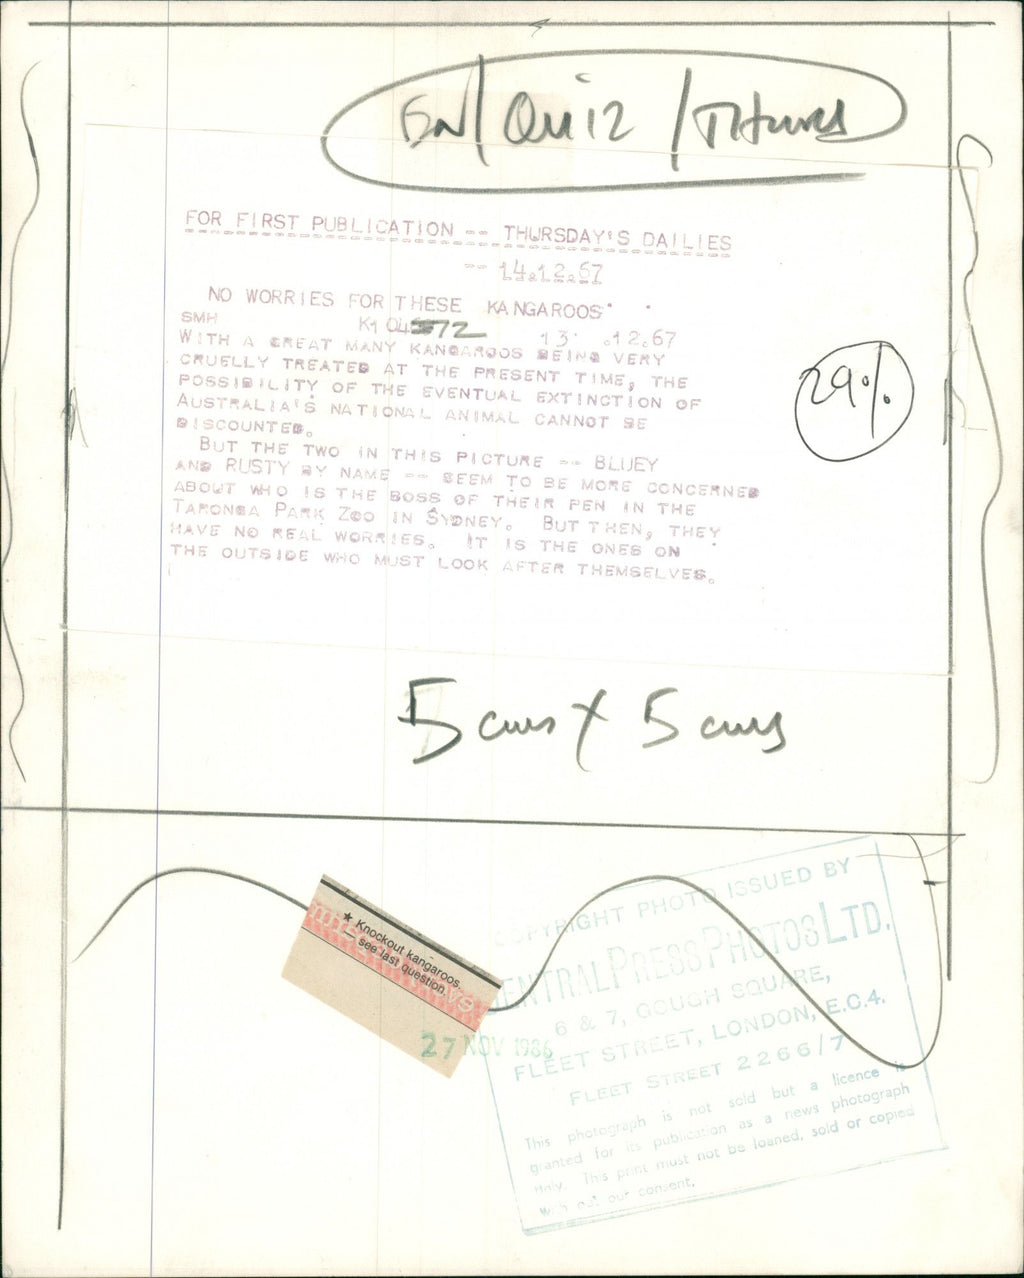 EN/Quiz/Features
FOR FIRST PUBLICATION -- THURSDAY'S DAILIES
-- 14.12.67
NO WORRIES FOR THESE KANGAROOS
SMH K104572 13 .12.67
WITH A GREAT MANY KANGAROOS BEING VERY
CRUELLY TREATED AT THE PRESENT TIME, THE
POSSIBILITY OF THE EVENTUAL EXTINCTION OF
AUSTRALIA'S NATIONAL ANIMAL CANNOT BE
DISCOUNTED.
BUT THE TWO IN THIS PICTURE -- BLUEY
AND RUSTY BY NAME -- SEEM TO BE MORE CONCERNED
ABOUT WHO IS THE BOSS OF THEIR PEN IN THE
TARONGA PARK ZOO IN SYDNEY. BUT THEN, THEY
HAVE NO REAL WORRIES. IT IS THE ONES ON
THE OUTSIDE WHO MUST LOOK AFTER THEMSELVES.
29%
5 cms x 5 cms
★ Knockout kangaroos,
— see last question.
27 NOV 1986
COPYRIGHT PHOTO ISSUED BY
CENTRAL PRESS PHOTOS LTD.
6 & 7, GOUGH SQUARE,
FLEET STREET, LONDON, E.C.4.
FLEET STREET 2266/7
This photograph is not sold but a licence is
granted for its publication as a news photograph
only. This print must not be loaned, sold or copied
without our consent.